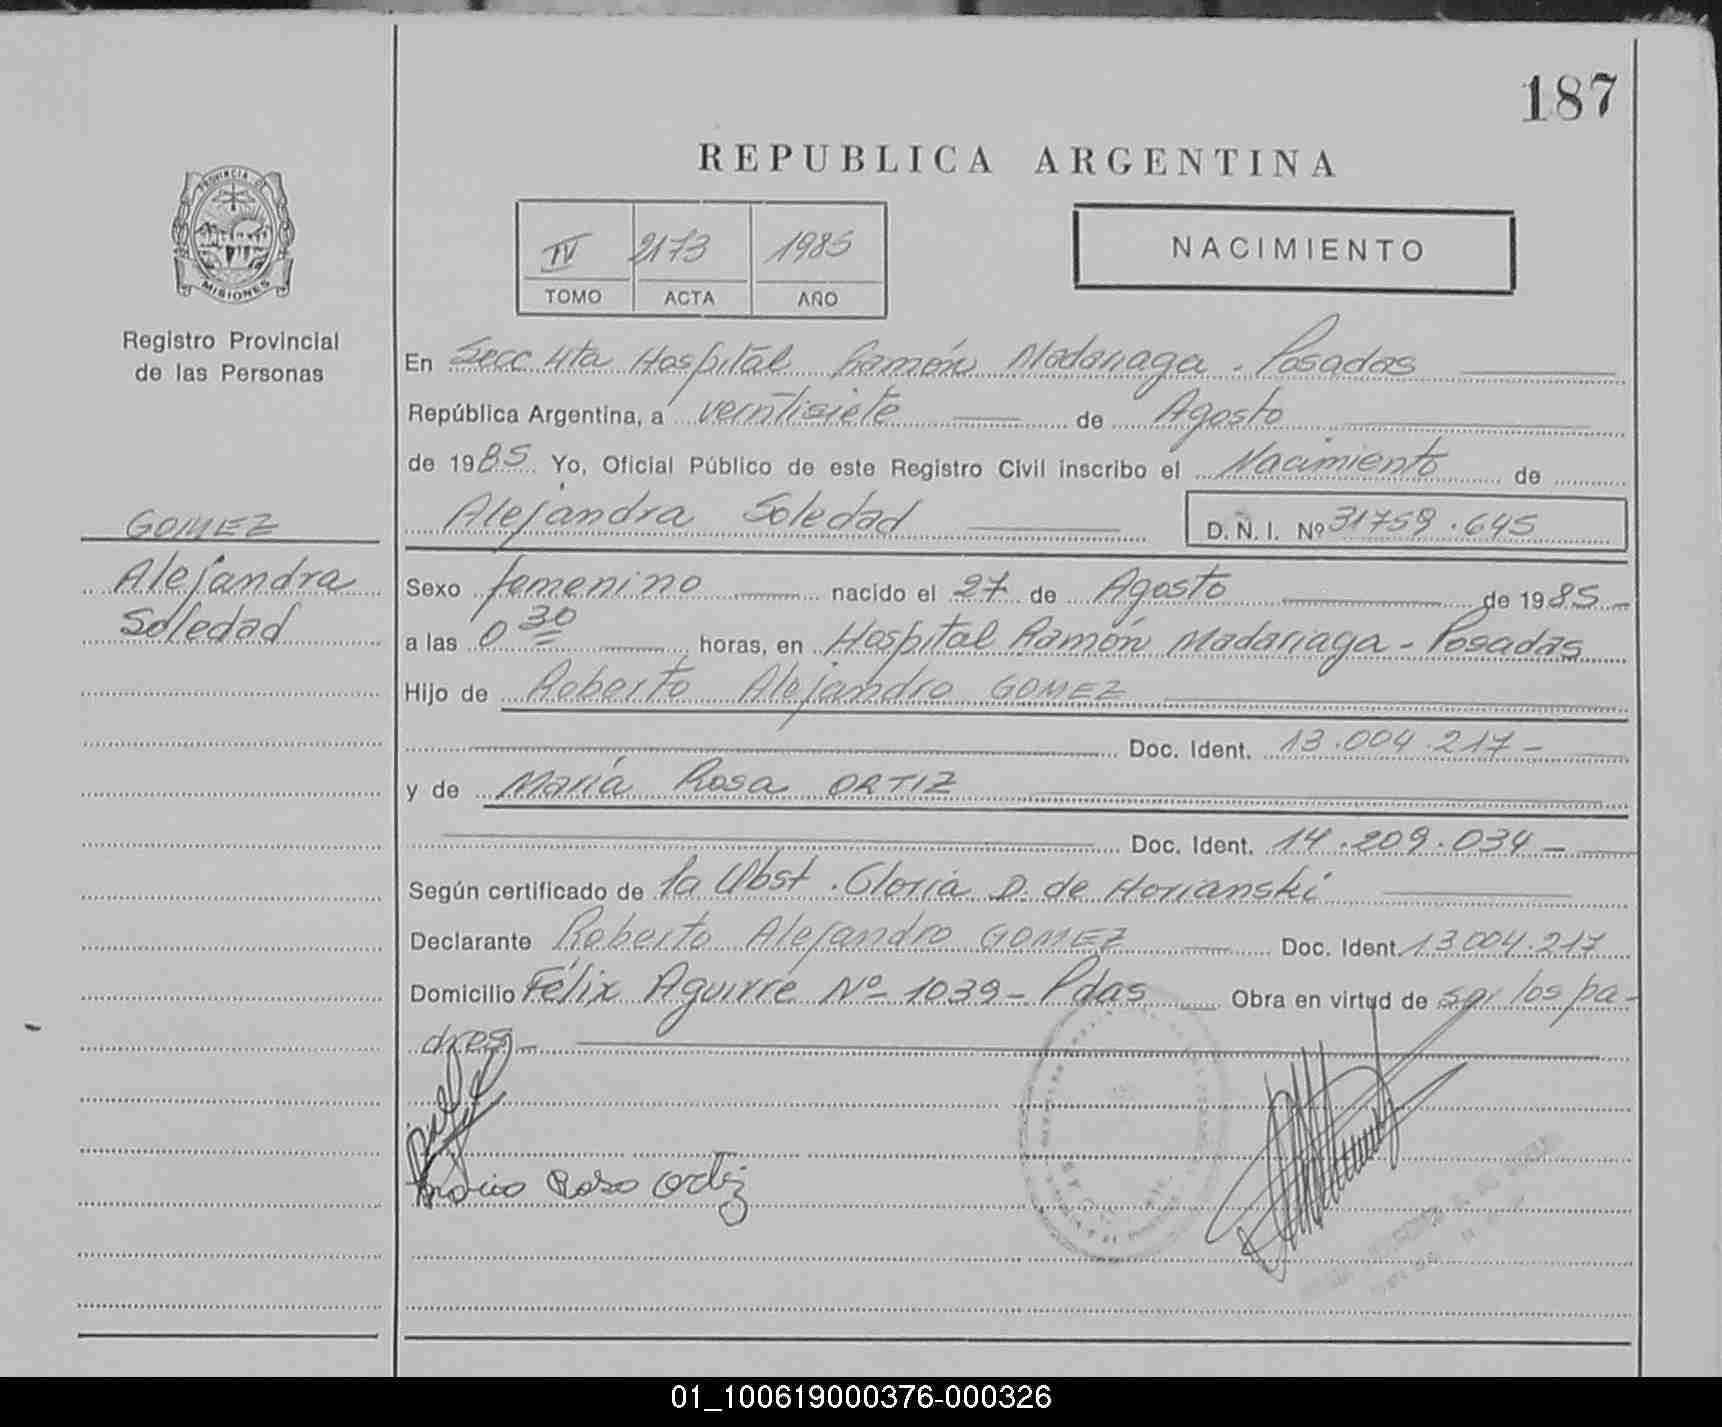 187
REPUBLICA ARGENTINA
PROVINCIA DE
MISIONES
IV 2173 1985
TOMO ACTA AÑO
NACIMIENTO
Registro Provincial
de las Personas
GOMEZ
Alejandra
Soledad
En Secc 4ta Hospital Ramón Madariaga - Posadas
República Argentina, a veintisiete de Agosto
de 1985 Yo, Oficial Público de este Registro Civil inscribo el Nacimiento de
Alejandra Soledad D.N.I. Nº 31759.645
Sexo femenino nacido el 27 de Agosto de 1985
a las 0 30 horas, en Hospital Ramón Madariaga - Posadas
Hijo de Roberto Alejandro GOMEZ
Doc. Ident. 13.004.217-
y de María Rosa ORTIZ
Doc. Ident. 14.209.034-
Según certificado de la Obst. Gloria D. de Horianski
Declarante Roberto Alejandro GOMEZ Doc. Ident. 13.004.217
Domicilio Félix Aguirre Nº 1039- Pdas Obra en virtud de ser los pa-
dres-
Maria Rosa Ortiz
01_100619000376-000326